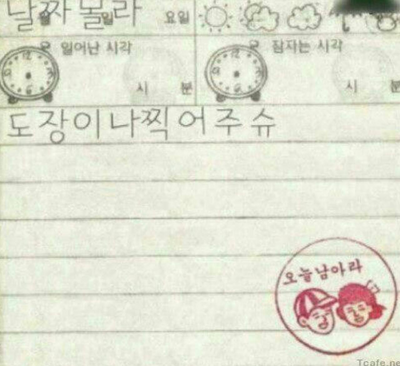 날짜 몰라 요일
일어난 시각 잠자는 시각
시 분 시 분
도장이나찍어주슈
오늘남아라
Tcafe.ne